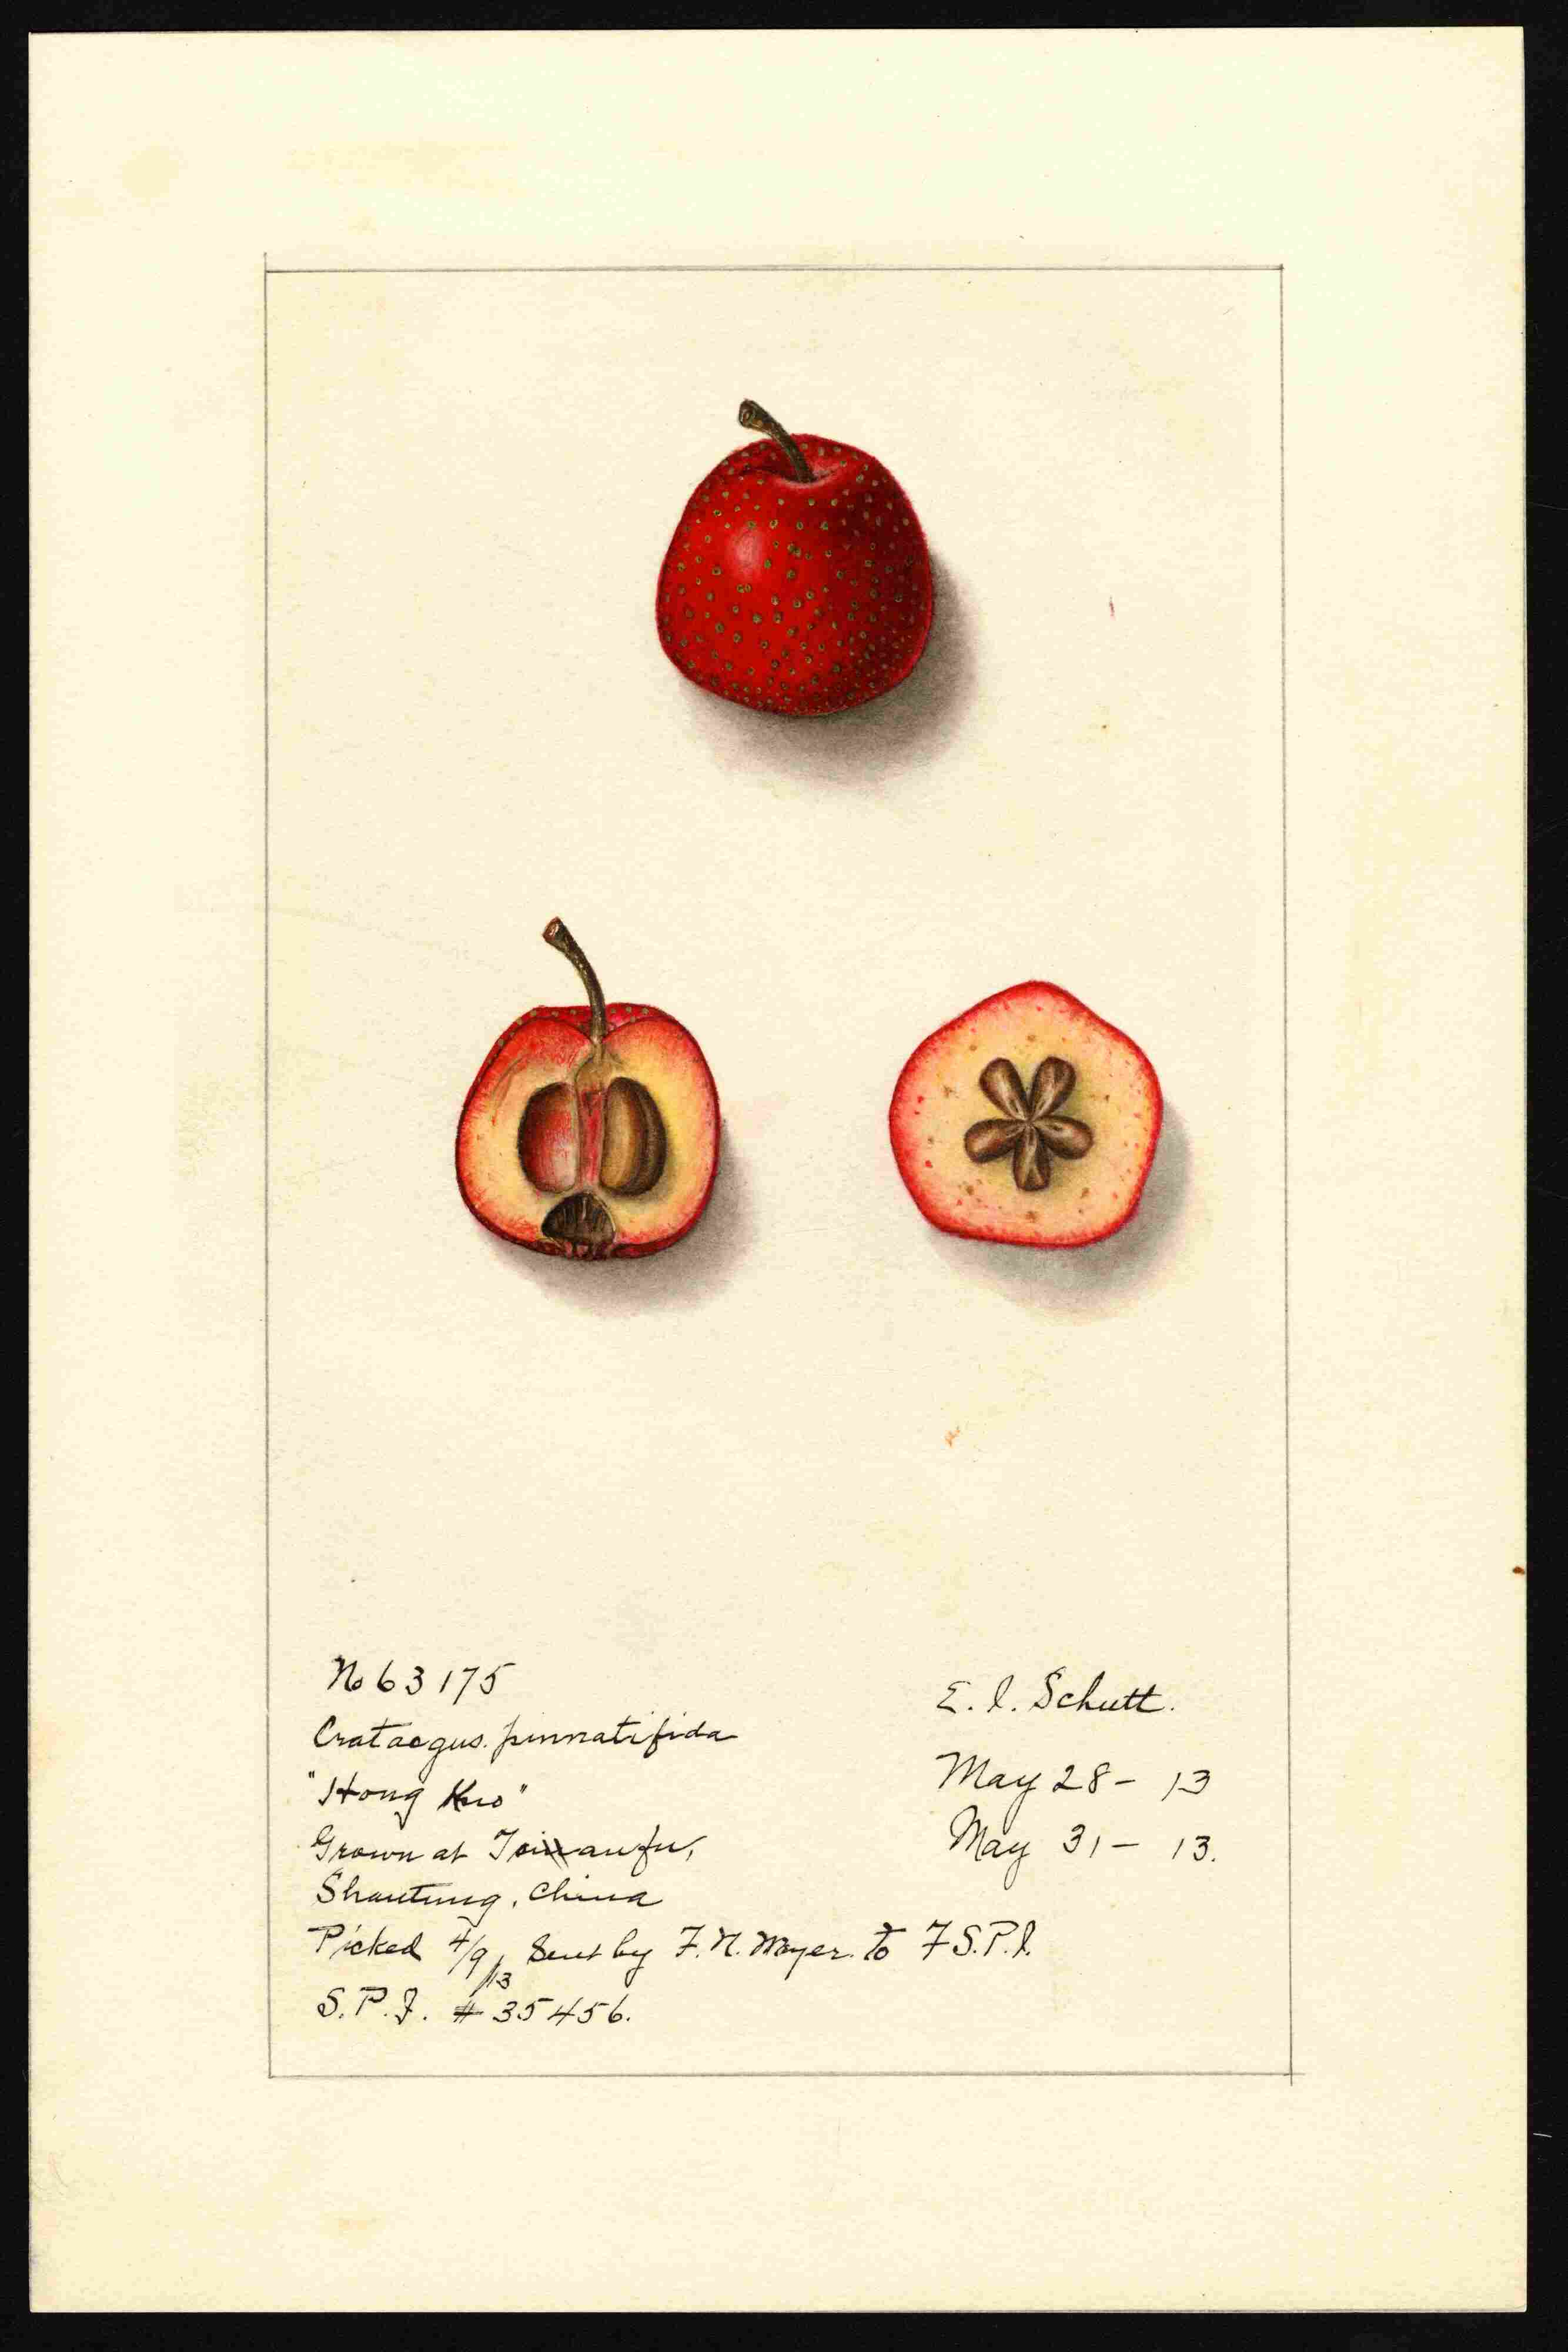 No 63175
Crataegus pinnatifida
"Hong Kuo"
Grown at Taianfu,
Shantung, China
Picked 4/9/13 Sent by F. N. Meyer to F S.P.I.
S.P.I. # 35456.
E. I. Schutt.
May 28 - 13
May 31 - 13.